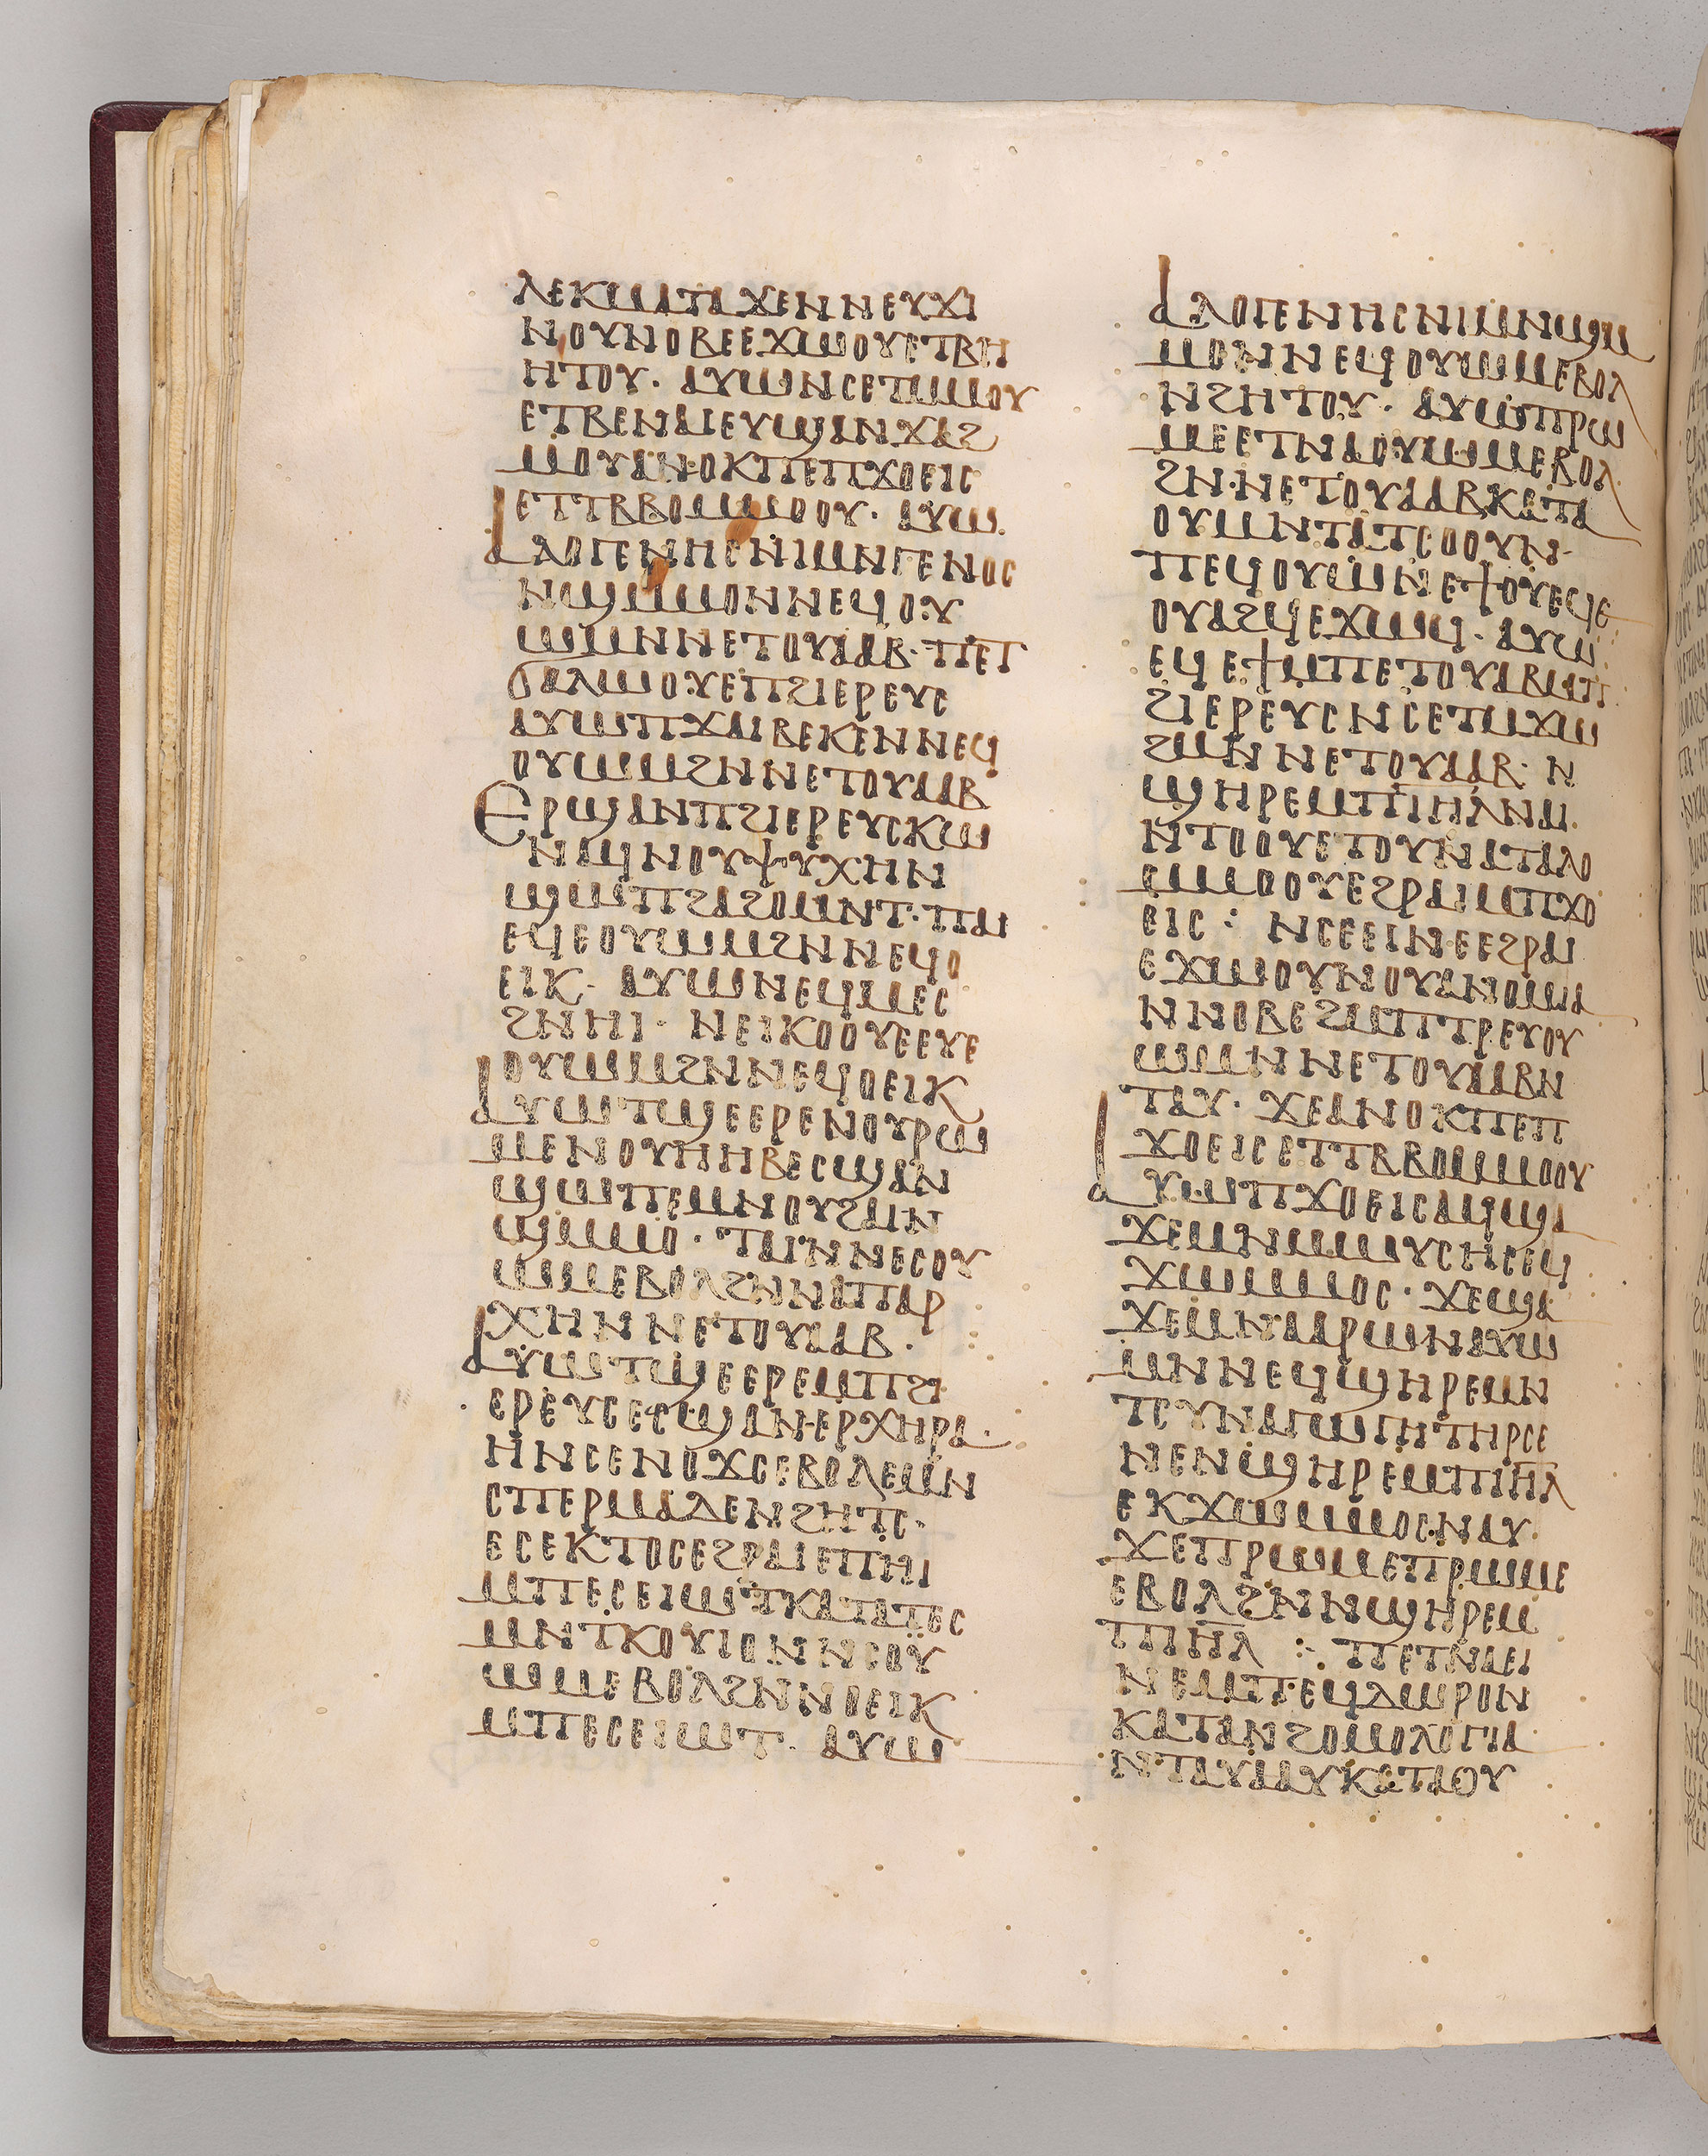 ⲗⲉⲕⲙⲁⲧⲁϫⲉⲛⲛⲉⲩϫⲓ
ⲛⲟⲩⲛⲟⲃⲉⲉϫⲱⲟⲩⲉⲧⲃⲏ
ⲏⲧⲟⲩ· ⲁⲩⲱⲛⲥⲉⲧⲙⲙⲟⲩ
ⲉⲧⲃⲉⲛⲁⲓⲉⲩϣⲁⲛϫⲁϩ
ⲙⲟⲩⲁⲛⲟⲕⲡⲉⲡϫⲟⲉⲓⲥ
ⲉⲧⲧⲃⲃⲟⲙⲙⲟⲟⲩ· ⲁⲩⲱ
ⲁⲗⲟⲅⲉⲛⲏⲥⲛⲓⲙⲛⲅⲉⲛⲟⲥ
ⲛϣⲙⲙⲟⲛⲛⲉϥⲟⲩ
ⲱⲙⲛⲛⲉⲧⲟⲩⲁⲁⲃ· ⲡⲉⲧ
ϭⲁⲗⲱⲟⲩⲉⲡϩⲓⲉⲣⲉⲩⲥ
ⲁⲩⲱⲡϫⲁⲓⲃⲉⲕⲉⲛⲛⲉϥ
ⲟⲩⲱⲙϩⲛⲛⲉⲧⲟⲩⲁⲁⲃ
ⲉⲣϣⲁⲛⲡϩⲓⲉⲣⲉⲩⲥⲕⲱ
ⲛⲁϥⲛⲟⲩⲯⲩⲭⲏⲛ
ϣⲱⲡϩⲁϩⲟⲙⲛⲧ· ⲡⲁⲓ
ⲉϥⲉⲟⲩⲱⲙϩⲛⲛⲉϥⲟ
ⲉⲓⲕ· ⲁⲩⲱⲛⲉϥⲙⲉⲥ
ϩⲛⲏⲓ· ⲛⲉⲓⲕⲟⲟⲩⲉⲉⲩⲉ
ⲟⲩⲱⲙϩⲛⲛⲉϥⲟⲉⲓⲕ
ⲁⲩⲱⲧϣⲉⲉⲣⲉⲛⲟⲩⲣⲱ
ⲙⲉⲛⲟⲩⲏⲏⲃⲉⲥϣⲁⲛ
ϣⲱⲡⲉⲙⲛⲟⲩϩⲁⲓⲛ
ϣⲙⲙⲟ· ⲧⲁⲓⲛⲛⲉⲥⲟⲩ
ⲱⲙⲉⲃⲟⲗϩⲛⲛⲁⲡⲁⲣ
ⲭⲏⲛⲛⲉⲧⲟⲩⲁⲁⲃ·
ⲁⲩⲱⲧϣⲉⲉⲣⲉⲙⲡϩⲓ
ⲉⲣⲉⲩⲥⲉⲥϣⲁⲛⲉⲣⲭⲏⲣⲁ·
ⲏⲛⲥⲉⲛⲟϫⲥⲉⲃⲟⲗⲉⲙⲛ
ⲥⲡⲉⲣⲙⲁⲇⲉⲛϩⲏⲧⲥ·
ⲉⲥⲉⲕⲧⲟⲥⲉϩⲣⲁⲓⲉⲡⲏⲓ
ⲙⲡⲉⲥⲉⲓⲱⲧⲕⲁⲧⲁⲧⲉⲥ
ⲙⲛⲧⲕⲟⲩⲓⲟⲛⲛⲥⲟⲩ
ⲱⲙⲉⲃⲟⲗϩⲛⲛⲟⲉⲓⲕ
ⲙⲡⲉⲥⲉⲓⲱⲧ· ⲁⲩⲱ
ⲁⲗⲟⲅⲉⲛⲏⲥⲛⲓⲙⲛϣⲙ
ⲙⲟⲛⲛⲉϥⲟⲩⲱⲙⲉⲃⲟⲗ
ⲛϩⲏⲧⲟⲩ· ⲁⲩⲱⲡⲣⲱ
ⲙⲉⲉⲧⲛⲁⲟⲩⲱⲙⲉⲃⲟⲗ
ϩⲛⲛⲉⲧⲟⲩⲁⲁⲃⲕⲁⲧⲁ
ⲟⲩⲙⲛⲧⲁⲧⲥⲟⲟⲩⲛ·
ⲡⲉϥⲟⲩⲱⲛⲉϯⲟⲩⲉϥⲉ
ⲟⲩⲁϩϥⲉϫⲱϥ· ⲁⲩⲱ
ⲉϥⲉϯⲙⲡⲉⲧⲟⲩⲁⲃⲙⲡ
ϩⲓⲉⲣⲉⲩⲥⲛⲥⲉⲧⲙϫⲱ
ϩⲙⲛⲛⲉⲧⲟⲩⲁⲁⲃ· ⲛ
ϣⲏⲣⲉⲙⲡⲓⲏⲗⲛⲁⲓ·
ⲛⲧⲟⲟⲩⲉⲧⲟⲩⲛⲁⲧⲁⲗⲟ
ⲙⲙⲟⲟⲩⲉϩⲣⲁⲓⲙⲡϫⲟ
ⲉⲓⲥ : ⲛⲥⲉⲉⲓⲛⲉⲉϩⲣⲁⲓ
ⲉϫⲱⲟⲩⲛⲟⲩⲁⲛⲟⲙⲓⲁ
ⲛⲛⲟⲃⲉϩⲙⲡⲧⲣⲉⲩⲟⲩ
ⲱⲙⲛⲛⲉⲧⲟⲩⲁⲁⲃⲛ
ⲧⲁⲩ· ϫⲉⲁⲛⲟⲕⲡⲉⲡ
ϫⲟⲉⲓⲥⲉⲧⲧⲃⲃⲟⲙⲙⲟⲟⲩ
ⲁⲩⲱⲡϫⲟⲉⲓⲥⲁϥϣⲁ
ϫⲉⲙⲛⲙⲱⲩⲥⲏⲥⲉϥ
ϫⲱⲙⲙⲟⲥ· ϫⲉϣⲁ
ϫⲉⲙⲛⲁⲁⲣⲱⲛⲁⲩⲱ
ⲙⲛⲛⲉϥϣⲏⲣⲉⲙⲛ
ⲧⲥⲩⲛⲁⲅⲱⲅⲏⲧⲏⲣⲥ
ⲛⲉⲛϣⲏⲣⲉⲙⲡⲓⲏⲗ
ⲉⲕϫⲱⲙⲙⲟⲥⲛⲁⲩ·
ϫⲉⲡⲣⲱⲙⲉⲡⲣⲱⲙⲉ
ⲉⲃⲟⲗϩⲛⲛϣⲏⲣⲉⲙ
ⲡⲓⲏⲗ : ⲡⲉⲧⲛⲁⲉⲓ
ⲛⲉⲙⲡⲉϥⲇⲱⲣⲟⲛ
ⲕⲁⲧⲁⲛϩⲟⲙⲟⲗⲟⲅⲓⲁ
ⲛⲧⲁⲩⲁⲁⲩⲕⲁⲧⲁⲑⲩ